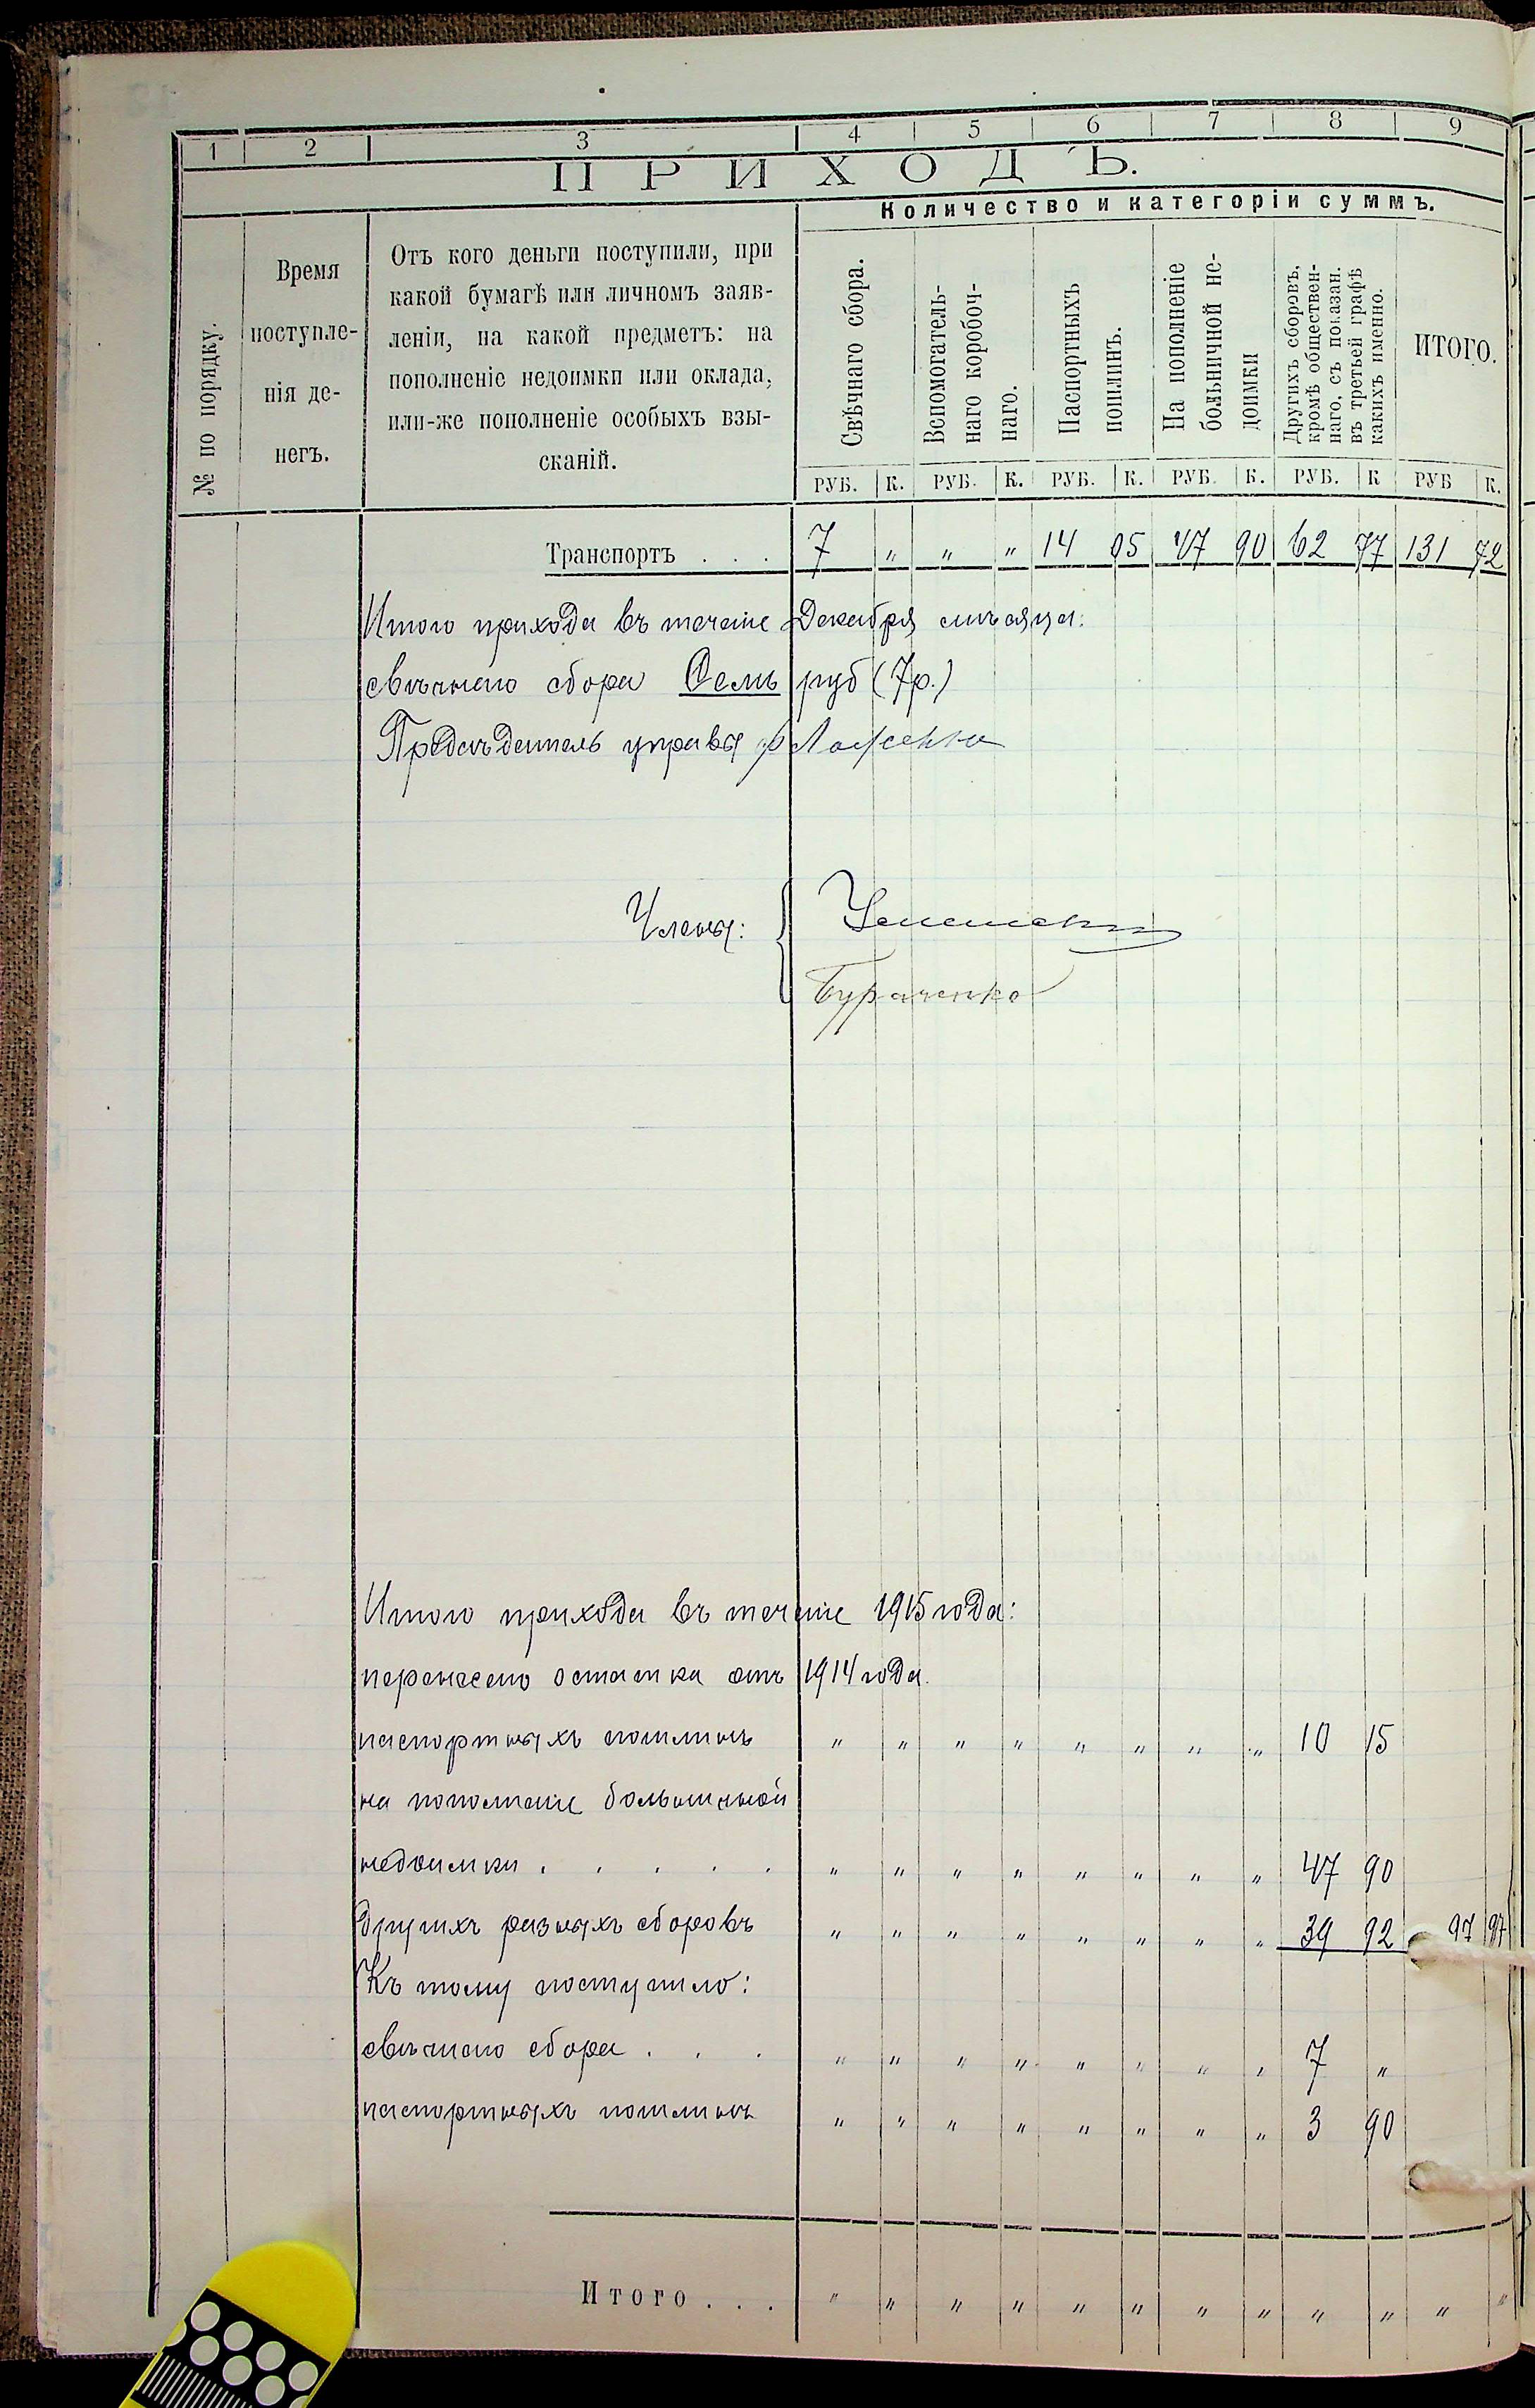 1 2 3 4 5 6 7 8 9
ПРИХОДЪ.
Количество и категоріи суммъ.
№ по порядку.
Время
поступле-
нія де-
негъ.
Отъ кого деньги поступили, при
какой бумагѣ или личномъ заяв-
леніи, на какой предметъ: на
пополненіе недоимки или оклада,
или-же пополненіе особыхъ взы-
сканій.
Свѣчнаго сбора.
Вспомогатель-
наго коробоч-
наго.
Паспортныхъ
пошлинъ.
На пополненіе
больничной не-
доимки
Другихъ сборовъ,
кромѣ обществен-
наго, съ показан.
въ третьей графѣ
какихъ именно.
ИТОГО.
РУБ. К. РУБ. К. РУБ. К. РУБ. К. РУБ. К РУБ К.
Транспортъ . . . 7 " " " 14 05 47 90 62 77 131 72
Итого прихода въ теченіе Декабря мѣсяца:
свѣчнаго сбора Семь руб (7р.)
Предсѣдатель управы
Члены:
Бураченко
Итого прихода въ теченіе 1915 года:
перенесено остатка отъ 1914 года.
паспортныхъ пошлинъ " " " " " " " " 10 15
на пополненіе больничной
недоимки . . . . . " " " " " " " " 47 90
другихъ разныхъ сборовъ " " " " " " " " 39 92 97 97
Къ тому поступило:
свѣчнаго сбора . . . " " " " " " " " 7 "
паспортныхъ пошлинъ " " " " " " " " 3 90
Итого . . . " " " " " " " " " " " "